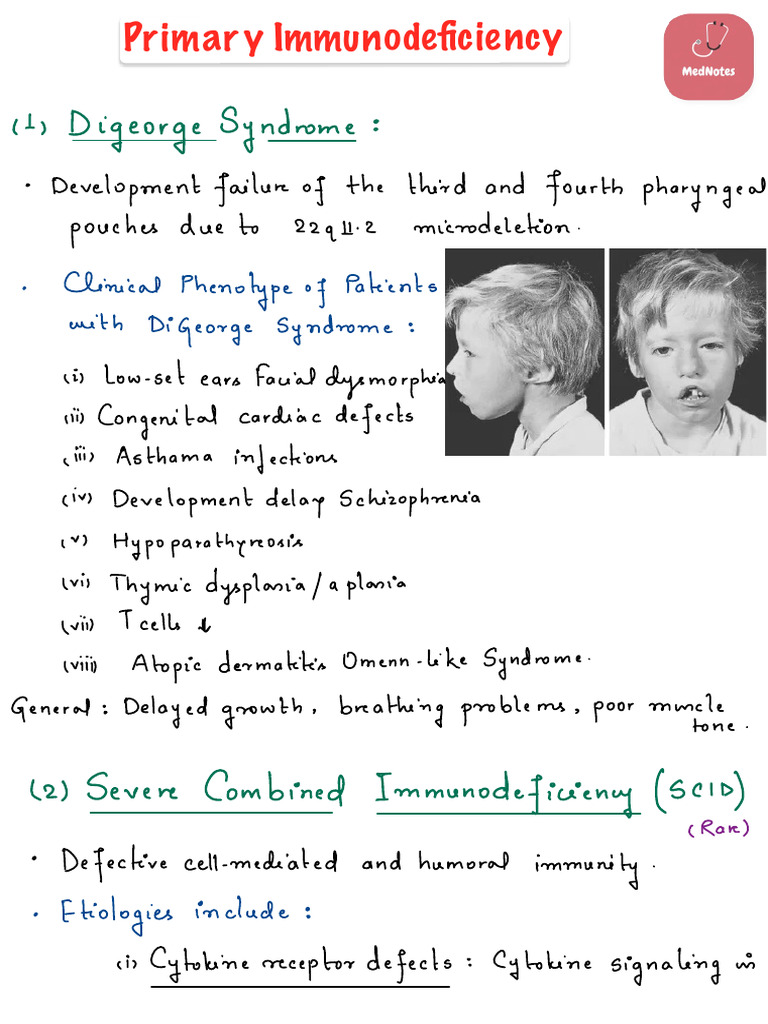 Primary Immunodeficiency
MedNotes
(1) Digeorge Syndrome :
• Development failure of the third and fourth pharyngeal
pouches due to 22q11.2 microdeletion.
• Clinical Phenotype of Patients
with DiGeorge Syndrome :
(i) Low-set ears Facial dysmorphia
(ii) Congenital cardiac defects
(iii) Asthama infections
(iv) Development delay Schizophrenia
(v) Hypoparathyreosis
(vi) Thymic dysplasia / aplasia
(vii) T cells ↓
(viii) Atopic dermatitis Omenn-like Syndrome.
General : Delayed growth, breathing problems, poor muscle
tone.
(2) Severe Combined Immunodeficiency (SCID)
(Rare)
• Defective cell-mediated and humoral immunity.
• Etiologies include :
(i) Cytokine receptor defects : Cytokine signaling in